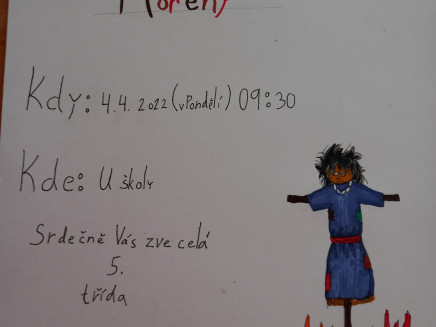 Mořeny
Kdy: 4.4. 2022 (v Pondělí) 09:30
Kde: U školy
Srdečně Vás zve celá
5.
třída